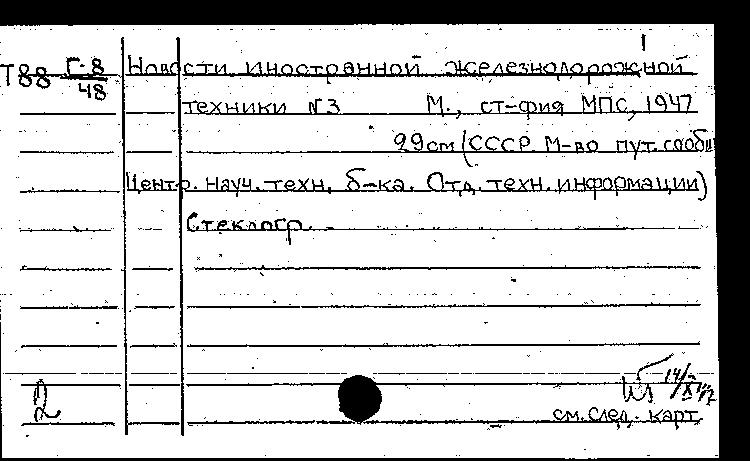 1
Т88 Г-8/48 Новости иностранной железнодорожной
техники №3 М., ст-фия МПС, 1947
29см (СССР. М-во пут. сообщ
Центр. науч. техн. б-ка. Отд. техн. информации)
Стеклогр.
2
см. след. карт.